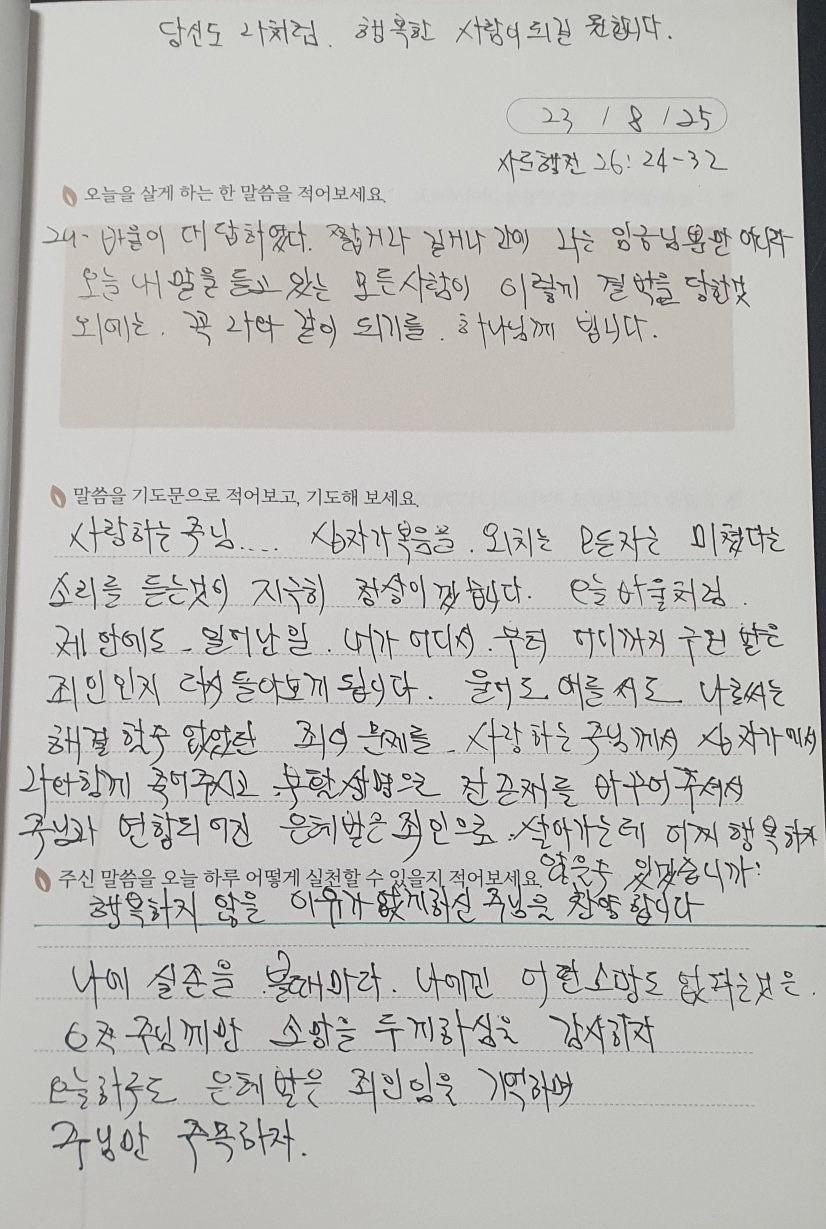 당신도 나처럼. 행복한 사람이 되길 원합니다.
23 / 8 / 25
사도행전 26:24-32
오늘을 살게 하는 한 말씀을 적어보세요.
29- 바울이 대답하였다. 짧거나 길거나 간에 나는 임금님 뿐만 아니라
오늘 내 말을 듣고 있는 모든 사람이 이렇게 결박을 당한것
외에는. 꼭 나와 같이 되기를. 하나님께 빕니다.
말씀을 기도문으로 적어보고, 기도해 보세요.
사랑하는 주님.... 십자가복음을. 외치는 모든자는 미쳤다는
소리를 듣는것이 지극히 정상이겠습니다. 오늘 바울처럼.
제 안에도 - 일어난 일. 내가 어디서. 부터 어디까지 구원 받은
죄인인지 다시 돌아보게 됩니다. 울어도 애를 써도 나로써는
해결 할수 없었던 죄의 문제를 - 사랑하는 주님께서 십자가에서
나와함께 죽어주시고. 부활생명으로 전 존재를 바꾸어 주셔서
주님과 연합되어진 은혜받은 죄인으로. 살아가는데 어찌 행복하지
않을수 있겠습니까!
주신 말씀을 오늘 하루 어떻게 실천할 수 있을지 적어보세요.
행복하지 않을 이유가 없게하신 주님을 찬양합니다
나에 실존을 볼때마다. 나에겐 어떤소망도 없다는것은.
오직 주님께만 소망을 두게하심을 감사하자
오늘하루도 은혜 받은 죄인임을 기억하며
주님만 주목하자.